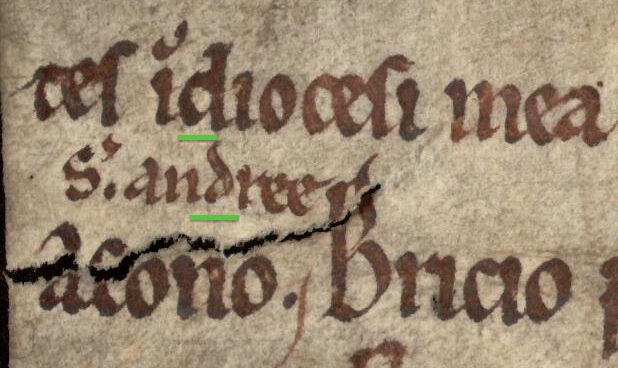 ces i diocesi mea
S. andree
acono. Bricio